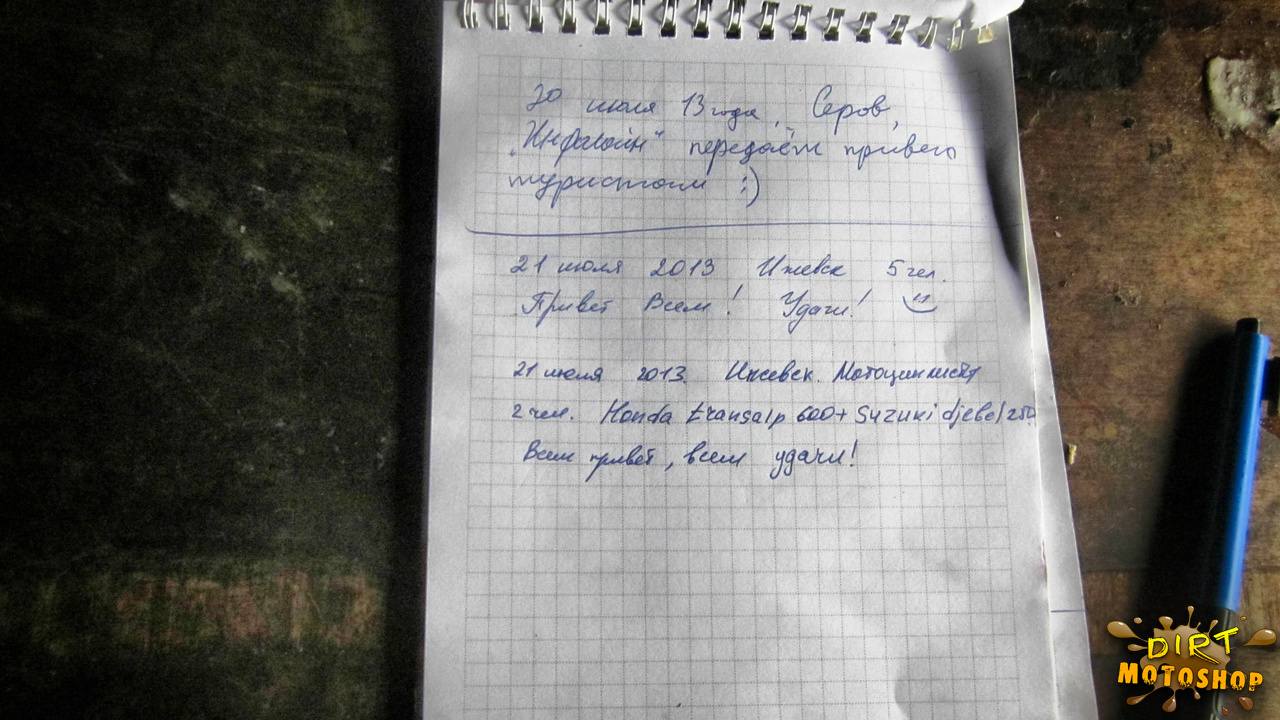 20 июля 13 года, Серов,
"Инфолайн" передаёт привет
туристам :)
21 июля 2013 Ижевск 5 чел.
Привет Всем! Удачи!
21 июля 2013. Ижевск. Мотоциклисты
2 чел. Honda transalp 600 + Suzuki djebel 250.
Всем привет, всем удачи!
DIRT
MOTOSHOP